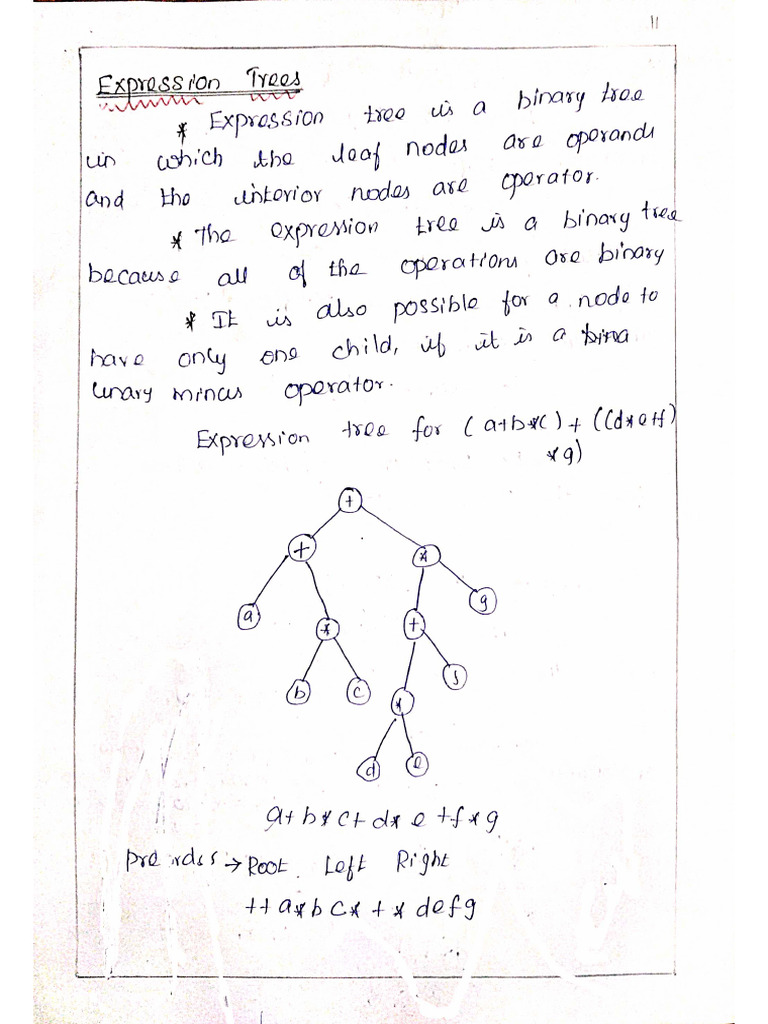 11
Expression Trees
* Expression tree is a binary tree
in which the leaf nodes are operands
and the interior nodes are operator.
* The expression tree is a binary tree
because all of the operations are binary
* It is also possible for a node to
have only one child, if it is a bina
unary minus operator.
Expression tree for (a+b*c) + ((d*e+f)
*g)
+
+ *
a * + g
b c * f
d e
a+b*c+d*e+f*g
Pre order → Root Left Right
++a*bc*+*defg